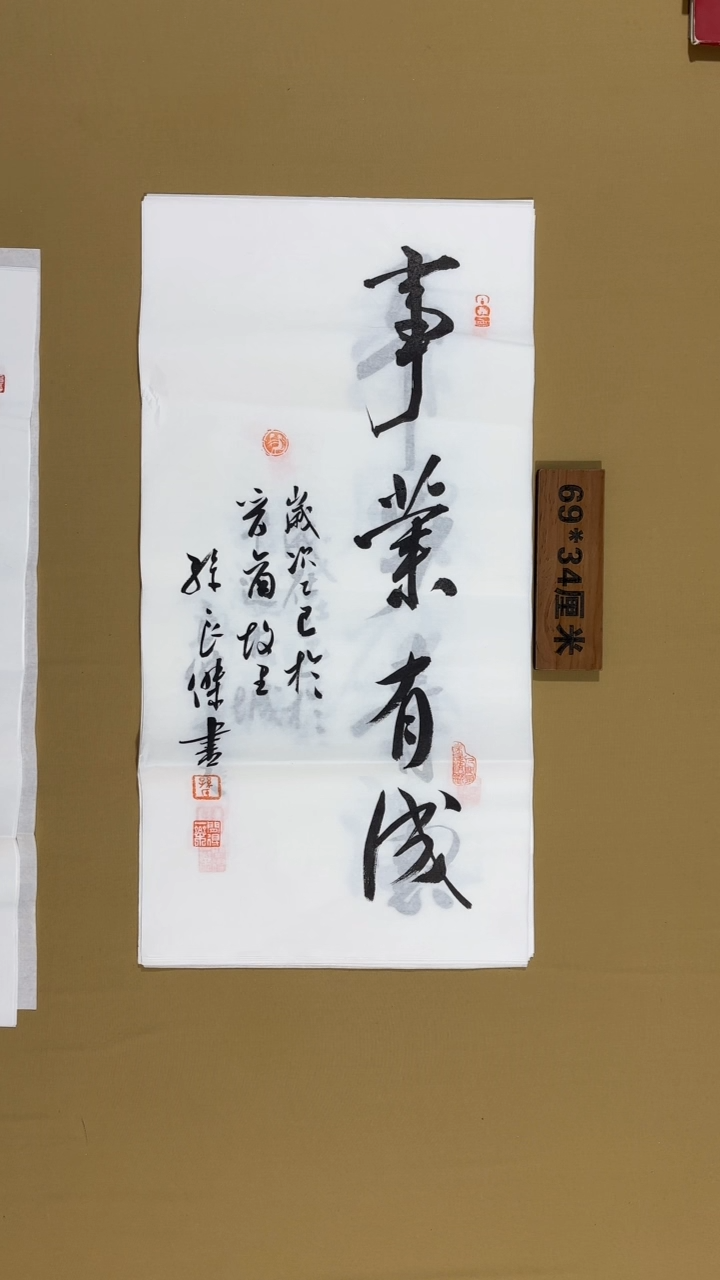 事業有成
歲次乙巳於
晉省故里
孫良傑書
69*34厘米